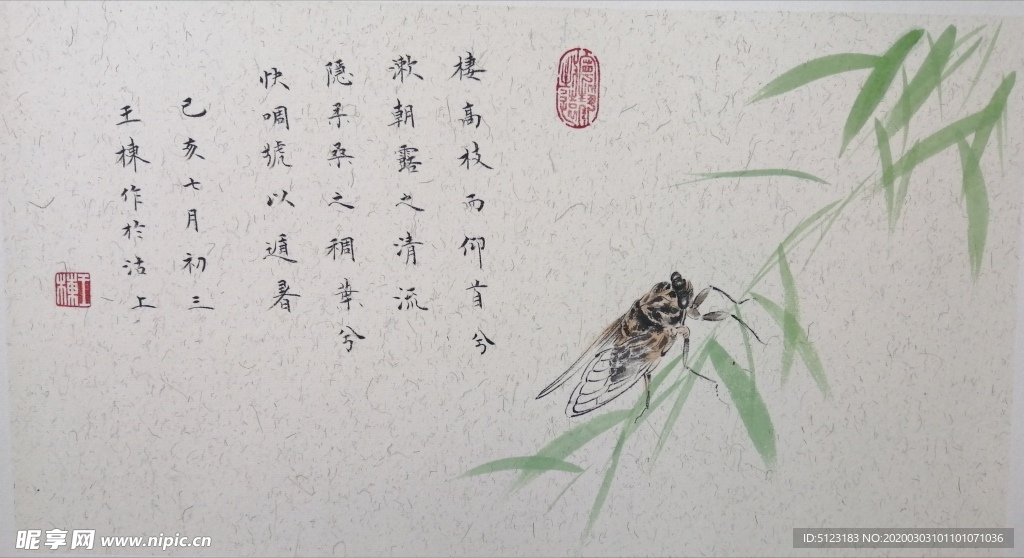 棲高枝而仰首兮
漱朝露之清流
隱柔桑之稠葉兮
快啁號以遁暑
己亥七月初三
王棟作於沽上
王棟
昵享网 www.nipic.cn
ID:5123183 NO:20200303101101071036